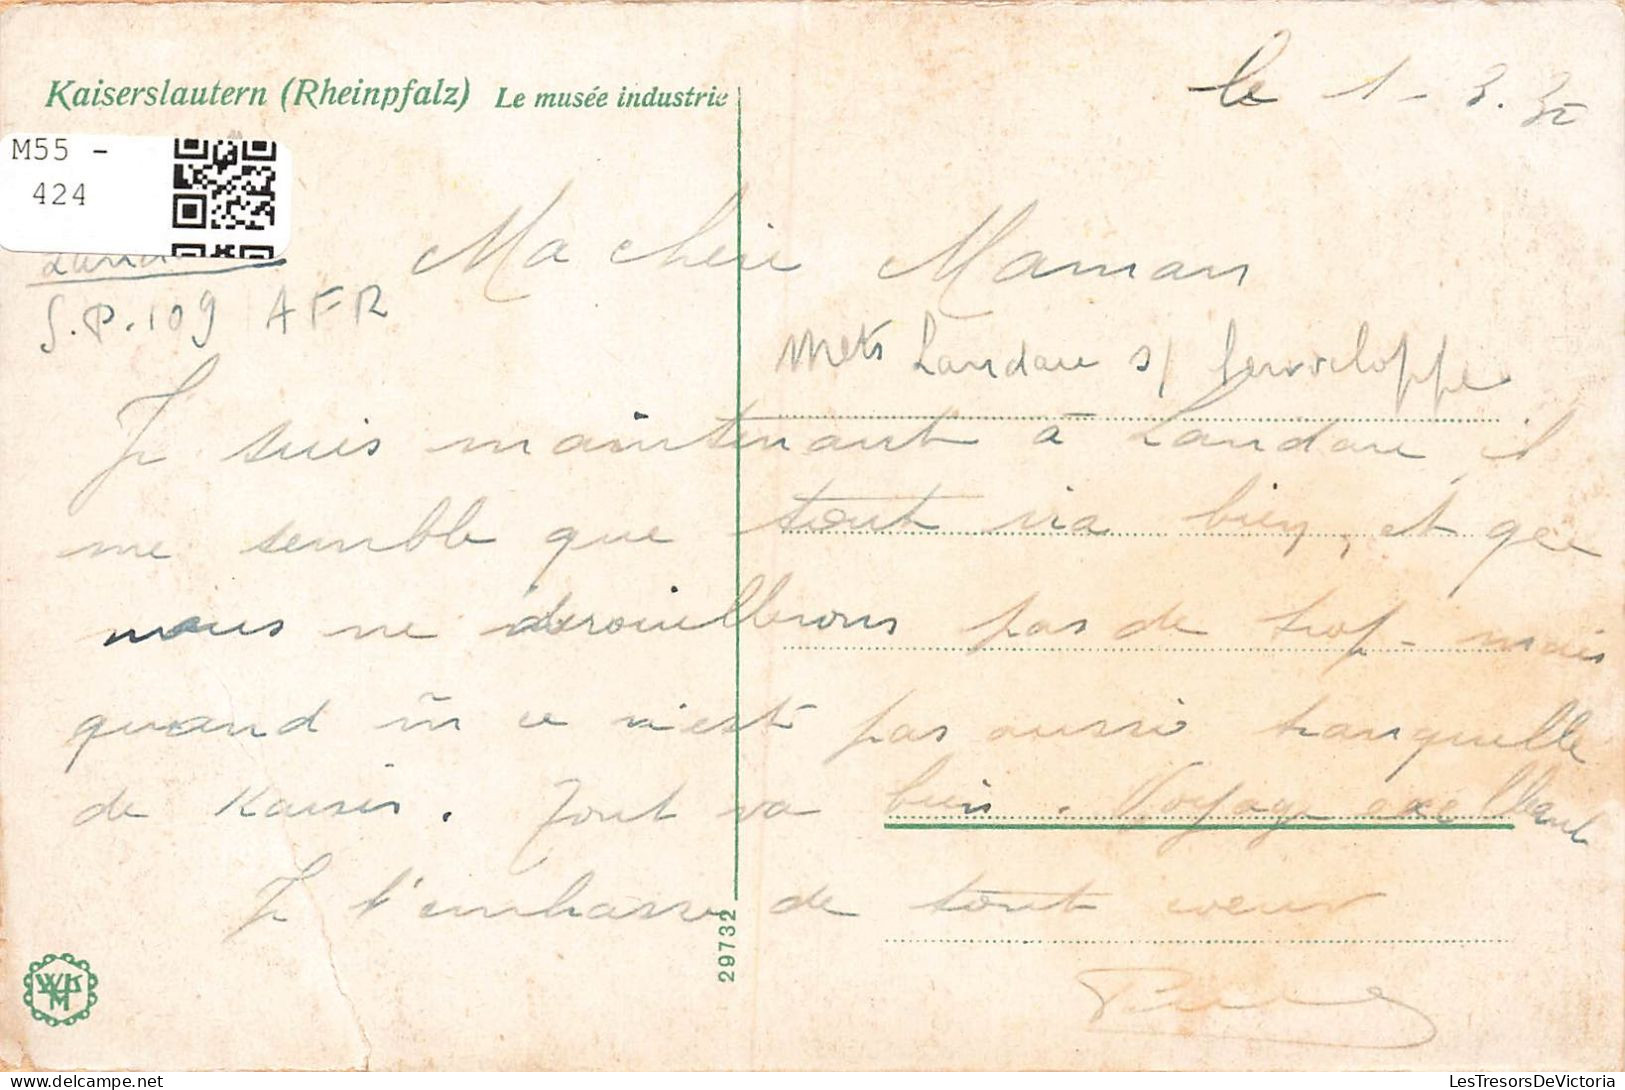 Kaiserslautern (Rheinpfalz) Le musée industrie
le 1-3.30
M55 -
424
S.P. 109 AFR
Ma chère Maman
Mets Landau s/ l'enveloppe
Je suis maintenant à Landau, il
me semble que tout ira bien, et que
nous ne derouillerons pas de trop - mais
quand m ce n'est pas aussi tranquille
de Kaiser. Tout va bien. Voyage excellent
Je t'embrasse de tout coeur
29732
WKM
LesTresorsDeVictoria
www.delcampe.net